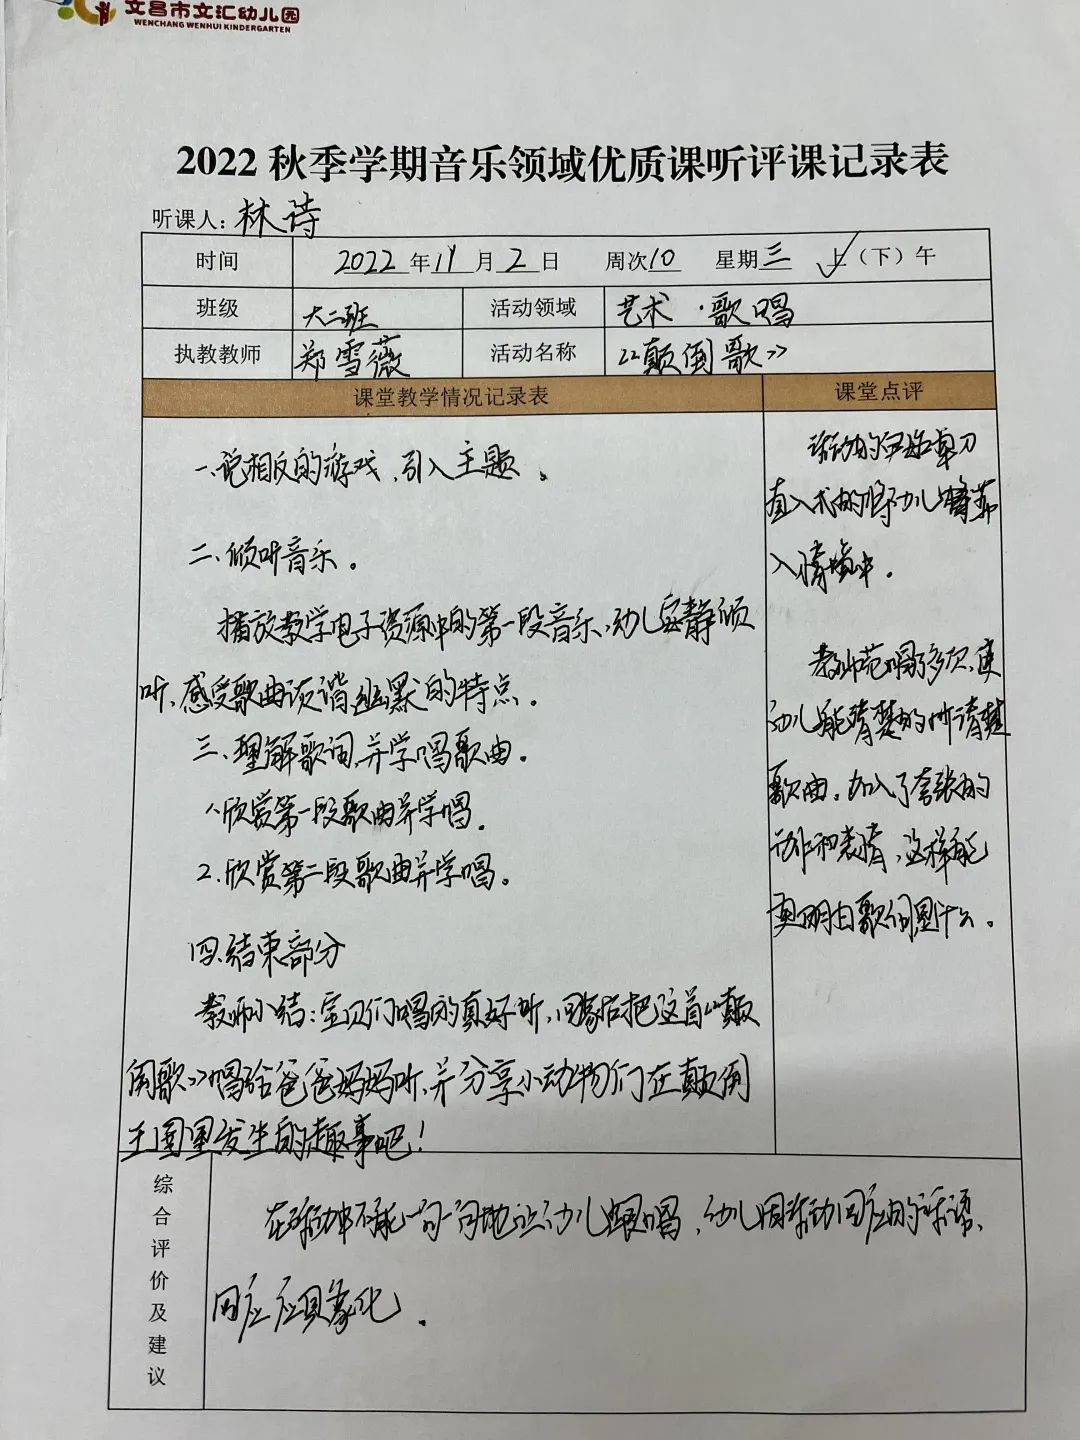 文昌市文汇幼儿园
WENCHANG WENHUI KINDERGARTEN
2022秋季学期音乐领域优质课听评课记录表
听课人：林诗
时间 2022年11月2日 周次10 星期三 上（下）午
班级 大二班 活动领域 艺术·歌唱
执教教师 郑雪薇 活动名称 《颠倒歌》
课堂教学情况记录表 课堂点评
一、说相反的游戏、引入主题。
二、倾听音乐。
播放教学电子资源中的第一段音乐，幼儿安静倾
听、感受歌曲诙谐幽默的特点。
三、理解歌词，并学唱歌曲。
1、欣赏第一段歌曲并学唱。
2、欣赏第二段歌曲并学唱。
四、结束部分
教师小结：宝贝们唱的真好听，回家后把这首《颠
倒歌》唱给爸爸妈妈听，并分享小动物们在颠倒
王国里发生的趣事吧！
活动的开始单刀
直入式的将幼儿带
入情境中。
教师范唱多次，使
幼儿能清楚的听清楚
歌曲。加入了夸张的
动作和表情，这样能
更明白歌词是什么。
综合评价及建议
在活动中不能一句一句地让幼儿跟唱，幼儿活动回应的话语、
回应应具象化。